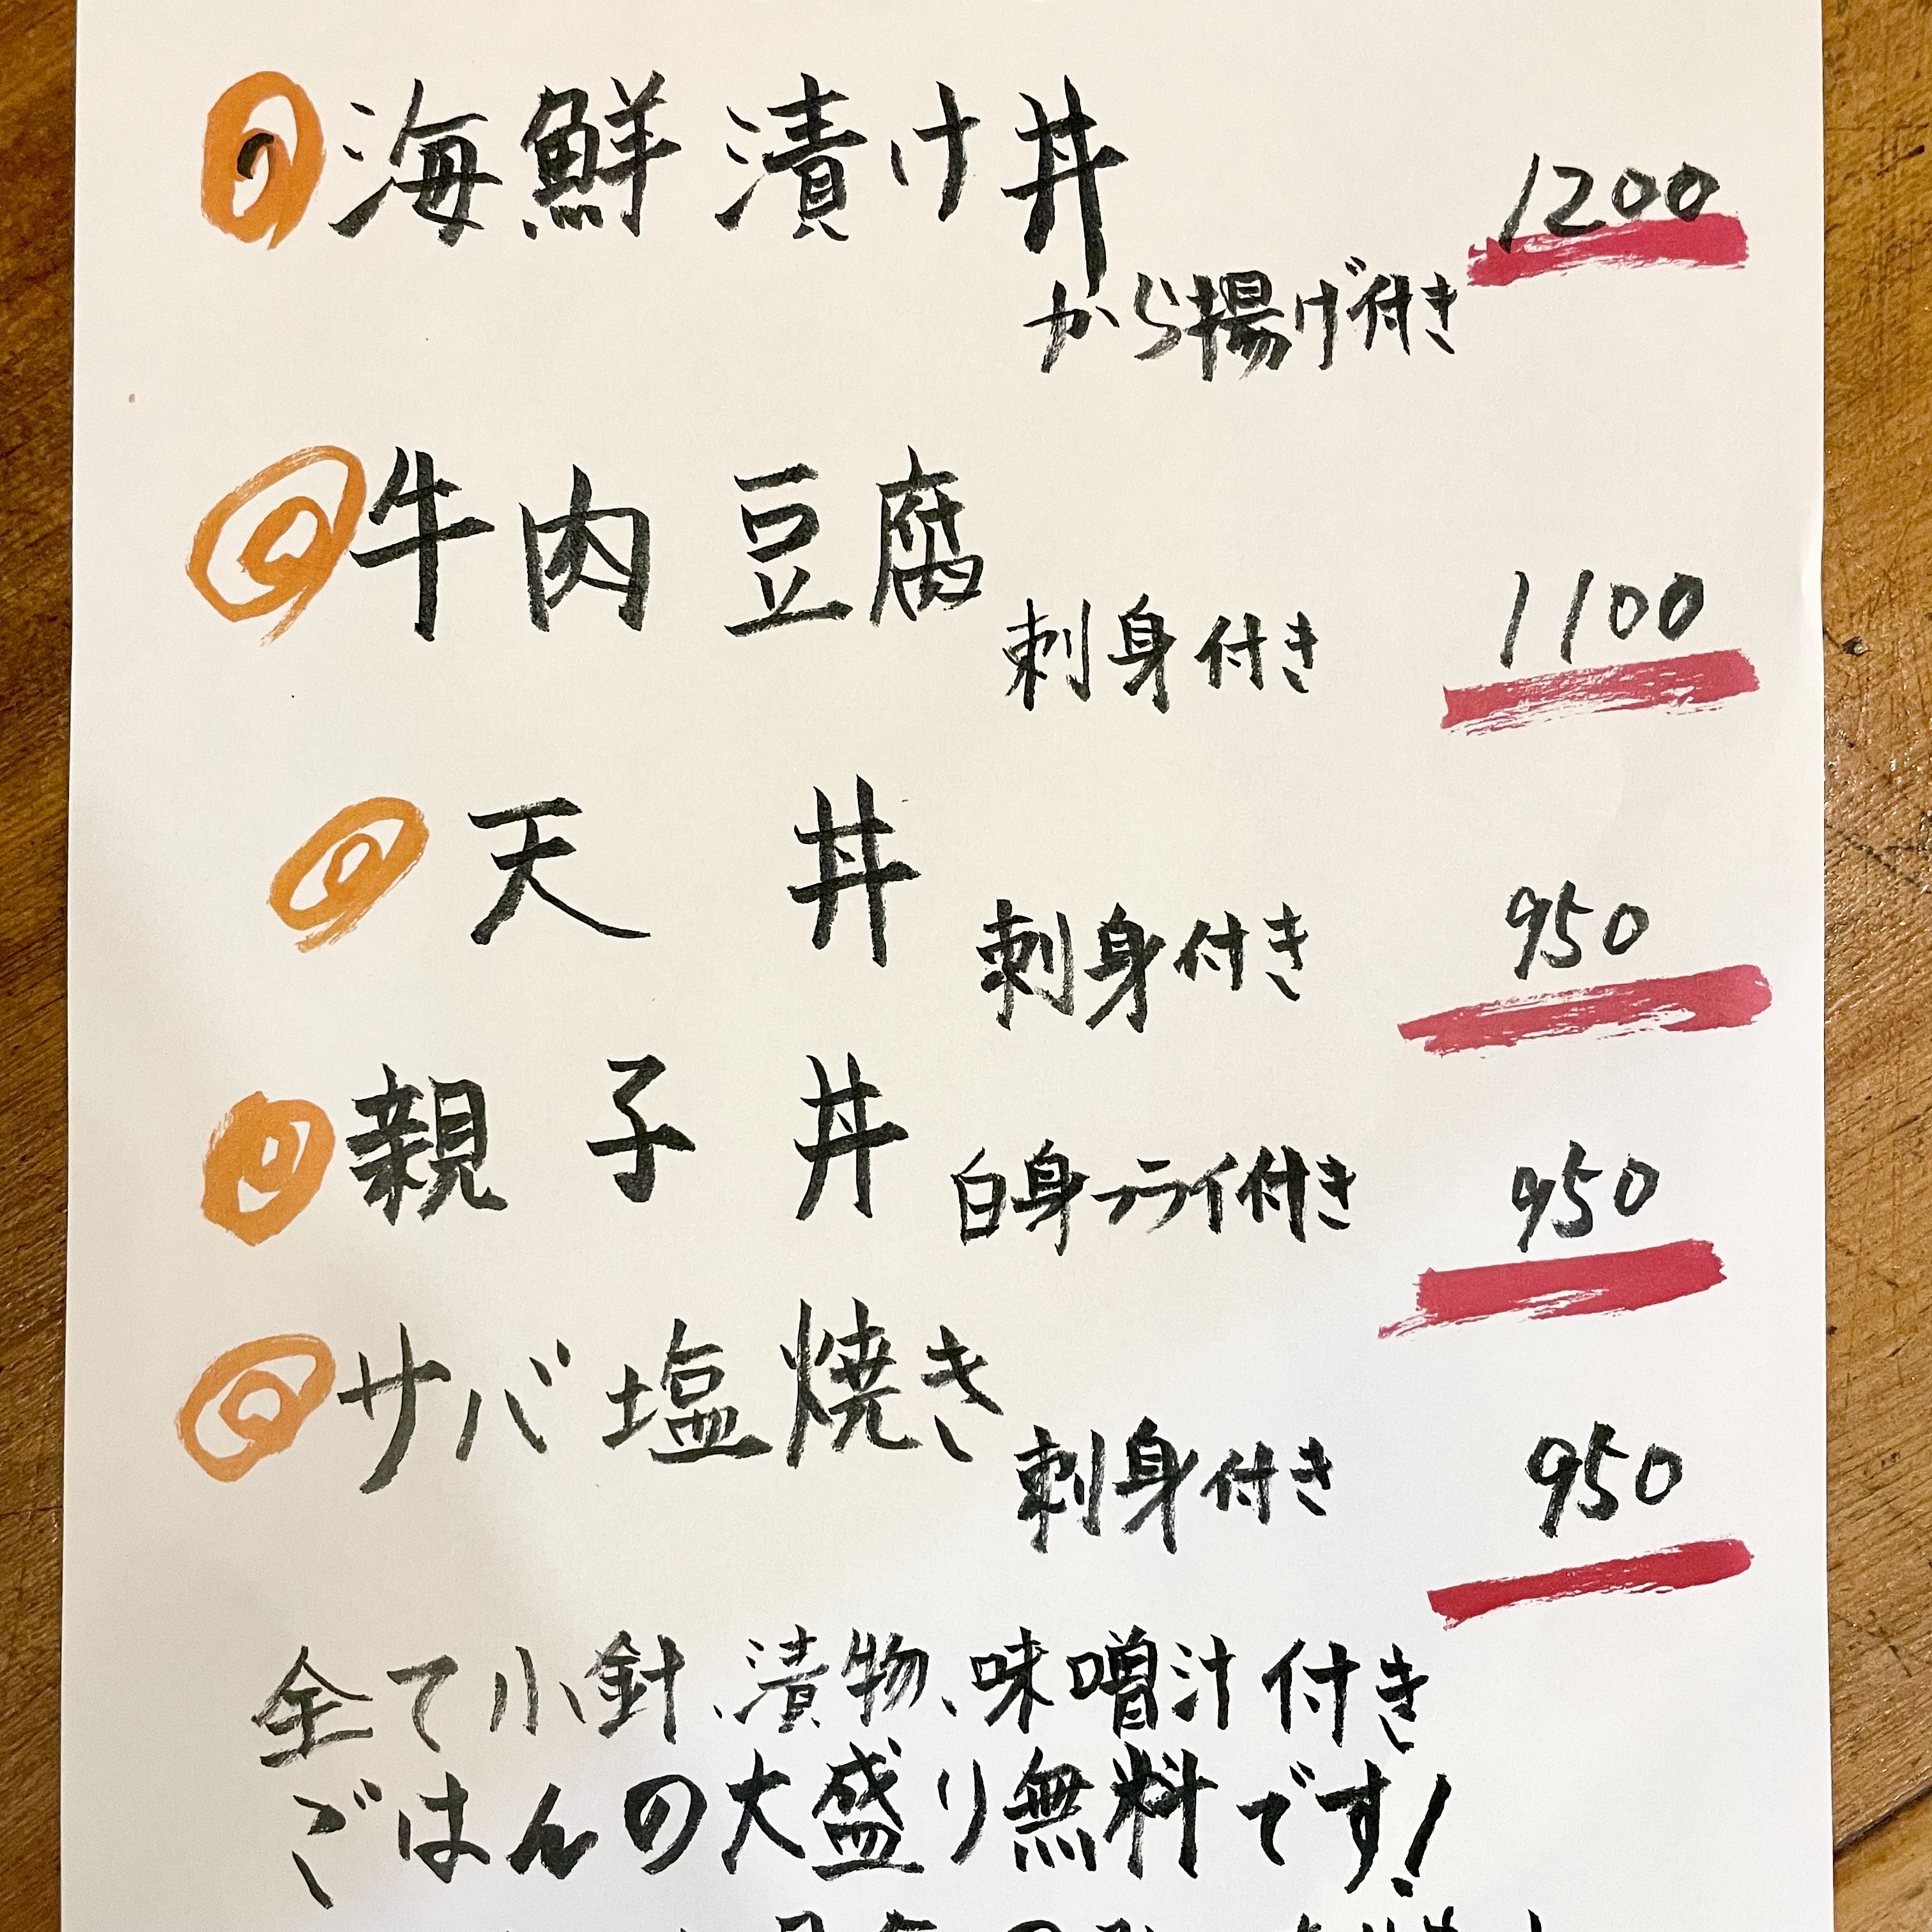 海鮮漬け丼 1200
から揚げ付き
牛肉豆腐 刺身付き 1100
天丼 刺身付き 950
親子丼 白身フライ付き 950
サバ塩焼き 刺身付き 950
全て小針、漬物、味噌汁付き
ごはんの大盛り無料です!